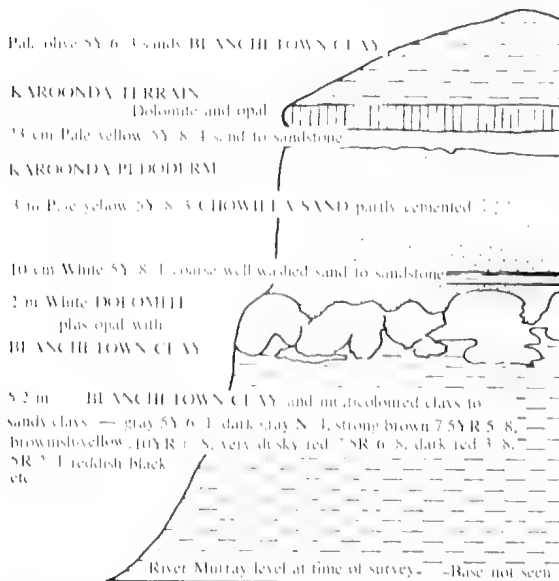 Pale olive 5Y 6 3 sandy BLANCHETOWN CLAY
KAROONDA TERRAIN
Dolomite and opal
23 cm Pale yellow 5Y 8 4 sand to sandstone
KAROONDA PEDODERM
3 m Pale yellow 5Y 8 3 CHOWILLA SAND partly cemented
10 cm White 5Y 8 1 coarse well washed sand to sandstone
2 m White DOLOMITE
plus opal with
BLANCHETOWN CLAY
5.2 m BLANCHETOWN CLAY and multicoloured clays to
sandy clays — gray 5Y 6 1 dark gray N 4, strong brown 7.5YR 5 8,
brownish-yellow 10YR 8, very dusky red 7.5R 6 8, dark red 3 8,
5R 2 1 reddish black
etc
River Murray level at time of survey - Base not seen